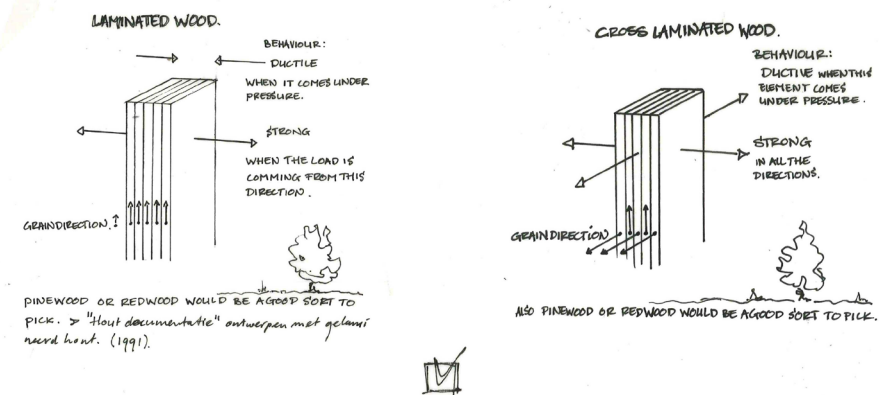 LAMINATED WOOD.
BEHAVIOUR:
DUCTILE
WHEN IT COMES UNDER
PRESSURE.
STRONG
WHEN THE LOAD IS
COMMING FROM THIS
DIRECTION.
GRAINDIRECTION.
PINEWOOD OR REDWOOD WOULD BE A GOOD SORT TO
PICK. > "Hout documentatie" ontwerpen met gelami
neerd hout. (1991).
CROSS LAMINATED WOOD.
BEHAVIOUR:
DUCTIVE WHEN THIS
ELEMENT COMES
UNDER PRESSURE.
STRONG
IN ALL THE
DIRECTIONS.
GRAINDIRECTION
ALSO PINEWOOD OR REDWOOD WOULD BE A GOOD SORT TO PICK.